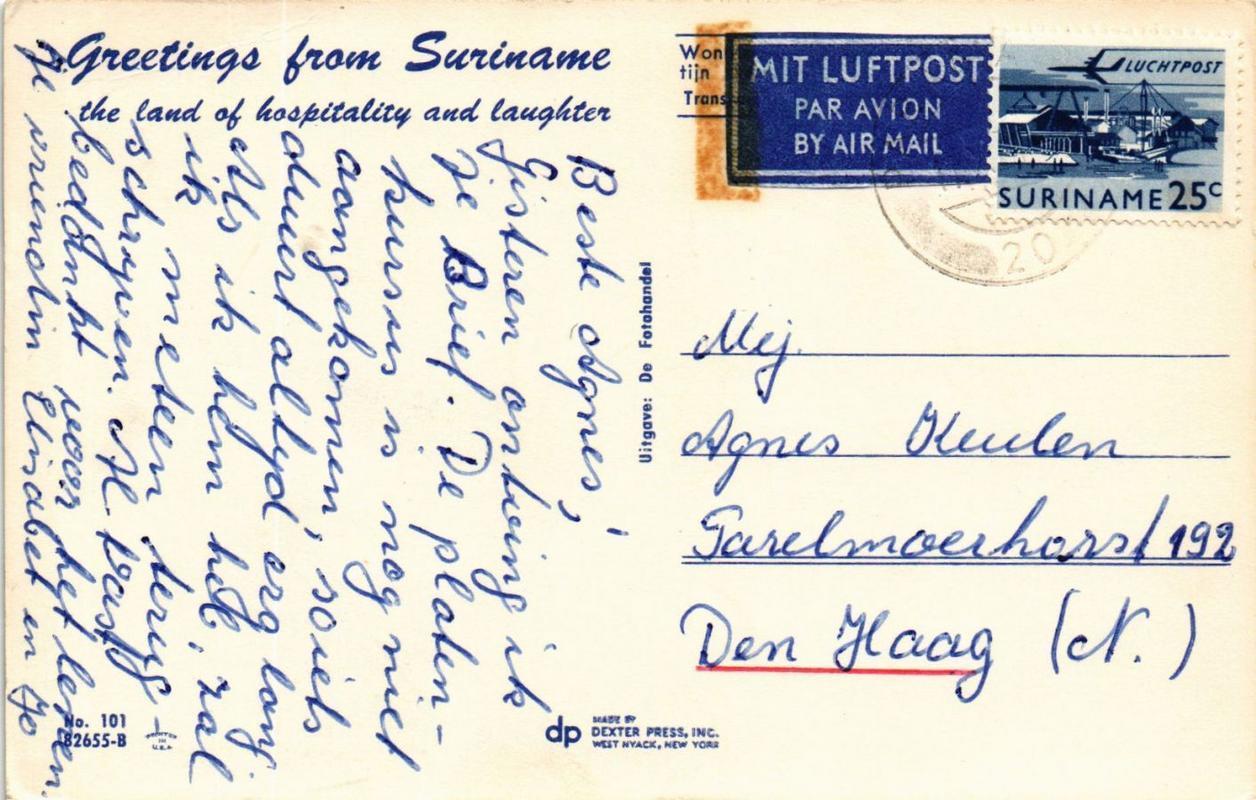 Greetings from Suriname
the land of hospitality and laughter
Won
tijn
Trans
MIT LUFTPOST
PAR AVION
BY AIR MAIL
LUCHTPOST
SURINAME 25c
20
Beste Agnes,
Gisteren ontving ik
je Brief. De platen-
kursus is nog niet
aangekomen, soiets
duurt altyd erg lang
Als ik hem heb, zal
ik meteen terug-
schryven. H. 
bedankt voor het lenen.
Je vriendin Elisabet en Jo
Uitgave: De Fotohandel
Mej.
Agnes Keulen
Tarelmoerhorst 192
Den Haag (N.)
No. 101
82655-B
PRINTED
IN
U.S.A.
dp
MADE BY
DEXTER PRESS, INC.
WEST NYACK, NEW YORK